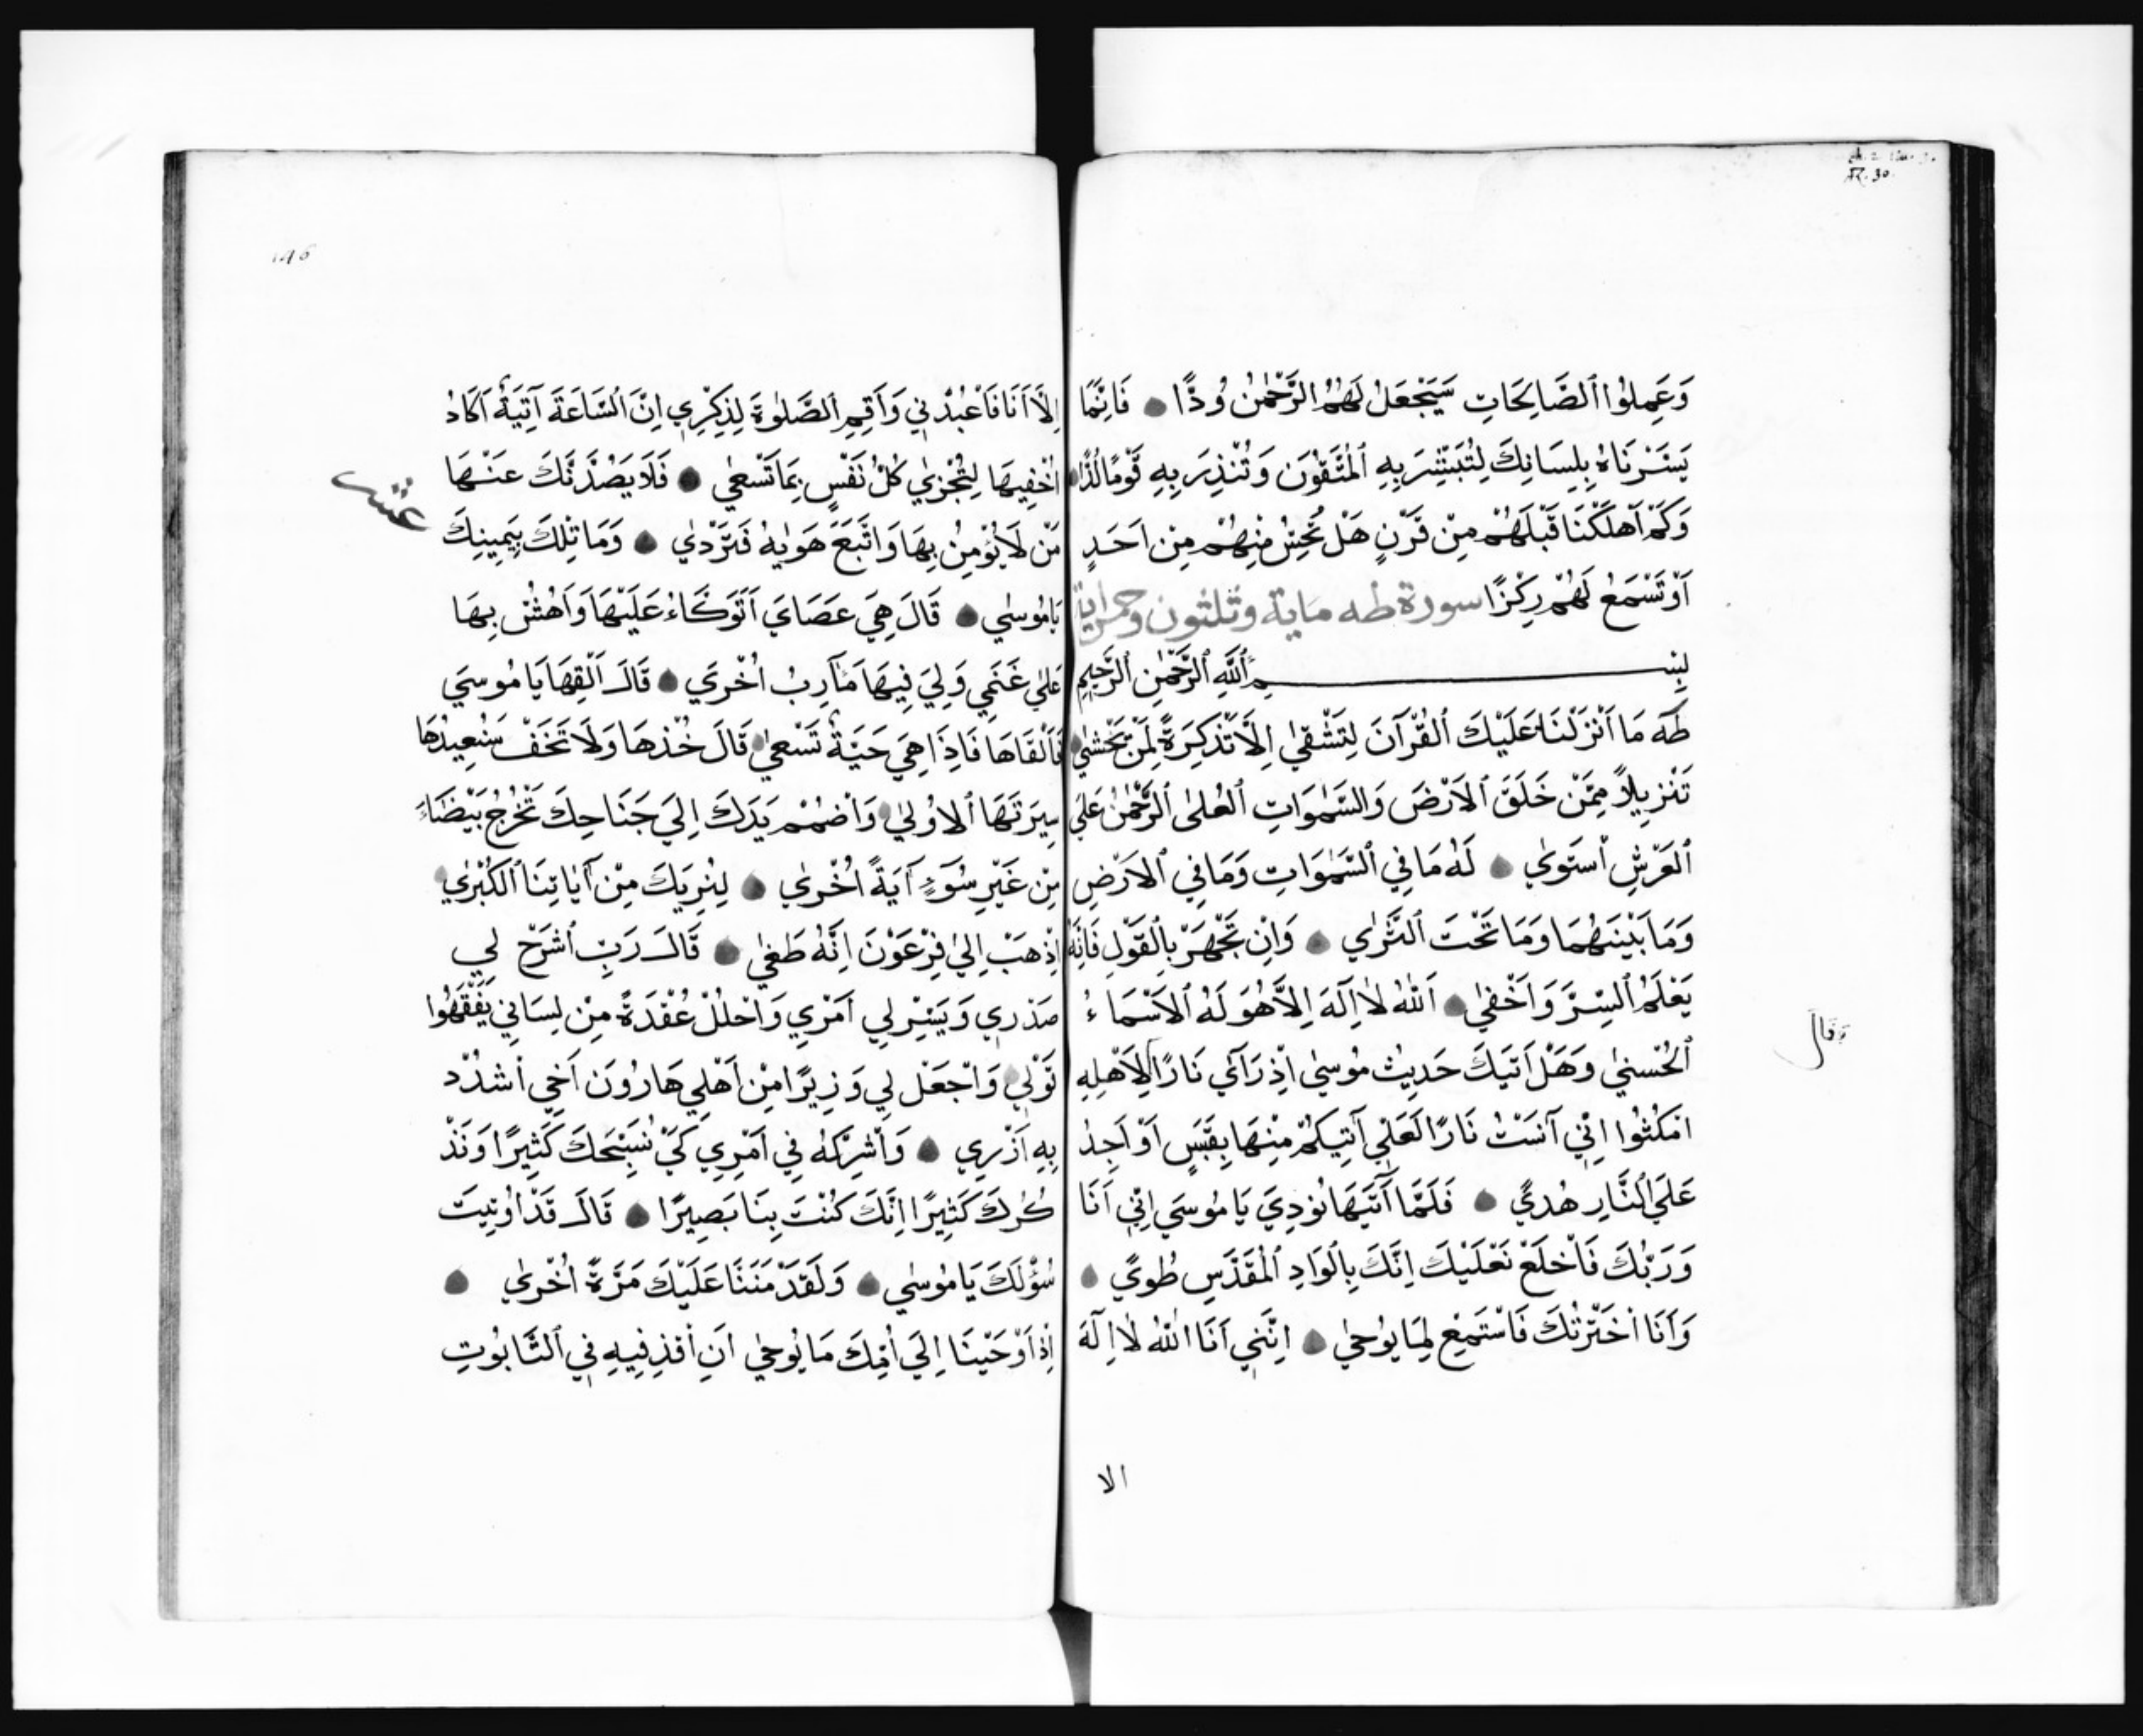 وَعَمِلُوا ٱلصَّالِحَاتِ سَيَجْعَلُ لَهُمُ الرَّحْمٰنُ وُدًّا فَاِنَّمَا
يَسَّرْنَاهُ بِلِسَانِكَ لِتُبَشِّرَ بِهِ ٱلْمُتَّقِوُنَ وَتُنْذِرَ بِهِ قَوْمًا لُدًّا
وَكَمْ اَهْلَكْنَا قَبْلَهُمْ مِنْ قَرْنٍ هَلْ تُحِسُّ مِنْهُمْ مِنْ اَحَدٍ
اَوْ تَسْمَعُ لَهُمْ رِكْزًا سورة طه ماية وثلثون وخمس اية
بِسْمِ ٱللَّهِ ٱلرَّحْمٰنِ ٱلرَّحِيمِ
طٰهٰ مَا اَنْزَلْنَا عَلَيْكَ ٱلْقُرْآنَ لِتَشْقٰي اِلَّا تَذْكِرَةً لِمَنْ يَخْشٰي
تَنْزِيلاً مِمَّنْ خَلَقَ ٱلاَرْضَ وَالسَّمٰوَاتِ ٱلْعُلٰى ٱلرَّحْمٰنُ عَلَي
ٱلعَرْشِ ٱسْتَوٰي لَهُ مَا فِي ٱلسَّمٰوَاتِ وَمَا فِي ٱلاَرْضِ
وَمَا بَيْنَهُمَا وَمَا تَحْتَ ٱلثَّرٰي وَاِنْ تَجْهَرْ بِالْقَوْلِ فَاِنَّهُ
يَعْلَمُ ٱلسِّرَّ وَاَخْفٰي اَللهُ لَا اِلَهَ اِلاَّ هُوَ لَهُ ٱلاَسْمَاءُ
ٱلْحُسْنٰي وَهَلْ اَتٰيكَ حَدِيثُ مُوسٰي اِذْ رَآي نَارًا لِاَهْلِهِ
وَقَالَ
امْكُثُوا اِنِّي آنَسْتُ نَارًا لَعَلِّي آتِيكُمْ مِنْهَا بِقَبَسٍ اَوْ اَجِدُ
عَلَي ٱلنَّارِ هُدًي فَلَمَّا اَتٰيهَا نُودِيَ يَا مُوسَي اِنِّي اَنَا
وَرَبُّكَ فَاخْلَعْ نَعْلَيْكَ اِنَّكَ بِالْوَادِ ٱلْمُقَدَّسِ طُوًي
وَاَنَا اخْتَرْتُكَ فَاسْتَمِعْ لِمَا يُوحٰي اِنَّنِي اَنَا اللهُ لَا اِلَهَ
الا
146
اِلَّا اَنَا فَاعْبُدْنِي وَاَقِمِ ٱلصَّلٰوةَ لِذِكْرِي اِنَّ ٱلسَّاعَةَ آتِيَةٌ اَكَادُ
اُخْفِيهَا لِتُجْزٰي كُلُّ نَفْسٍ بِمَا تَسْعٰي فَلَا يَصُدَّنَّكَ عَنْهَا
عشر
مَنْ لَا يُؤْمِنُ بِهَا وَاتَّبَعَ هَوٰيهُ فَتَرْدٰي وَمَا تِلْكَ بِيَمِينِكَ
يَا مُوسٰي قَالَ هِيَ عَصَايَ اَتَوَكَّاءُ عَلَيْهَا وَاَهُشُّ بِهَا
عَلٰي غَنَمِي وَلِيَ فِيهَا مَآرِبُ اُخْرَي قَالَ اَلْقِهَا يَا مُوسَي
فَاَلْقَاهَا فَاِذَا هِيَ حَيَةٌ تَسْعٰي قَالَ خُذْهَا وَلَا تَخَفْ سَنُعِيدُهَا
سِيرَتَهَا ٱلاُولٰي وَاضْمُمْ يَدَكَ اِلَي جَنَاحِكَ تَخْرُجُ بَيْضَاءَ
مِنْ غَيْرِ سُوَءٍ آيَةً اُخْرٰي لِنُرِيَكَ مِنْ آيَاتِنَا ٱلْكُبْرٰي
اِذْهَبْ اِلٰي فِرْعَوْنَ اِنَّهُ طَغٰي قَالَ رَبِّ ٱشْرَحْ لِي
صَدْرِي وَيَسِّرْ لِي اَمْرِي وَاحْلُلْ عُقْدَةً مِنْ لِسَانِي يَفْقَهُوا
قَوْلِي وَاجْعَلْ لِي وَزِيرًا مِنْ اَهْلِي هَارُونَ اَخِي اشْدُدْ
بِهِ اَزْرِي وَاَشْرِكْهُ فِي اَمْرِي كَيْ نُسَبِّحَكَ كَثِيرًا وَنَذْ
كُرُكَ كَثِيرًا اِنَّكَ كُنْتَ بِنَا بَصِيرًا قَالَ قَدْ اُوتِيتَ
سُؤْلَكَ يَا مُوسٰي وَلَقَدْ مَنَنَّا عَلَيْكَ مَرَّةً اُخْرٰي
اِذْ اَوْحَيْنَا اِلَي اُمِّكَ مَا يُوحٰي اَنِ اقْذِفِيهِ فِي ٱلتَّابُوتِ